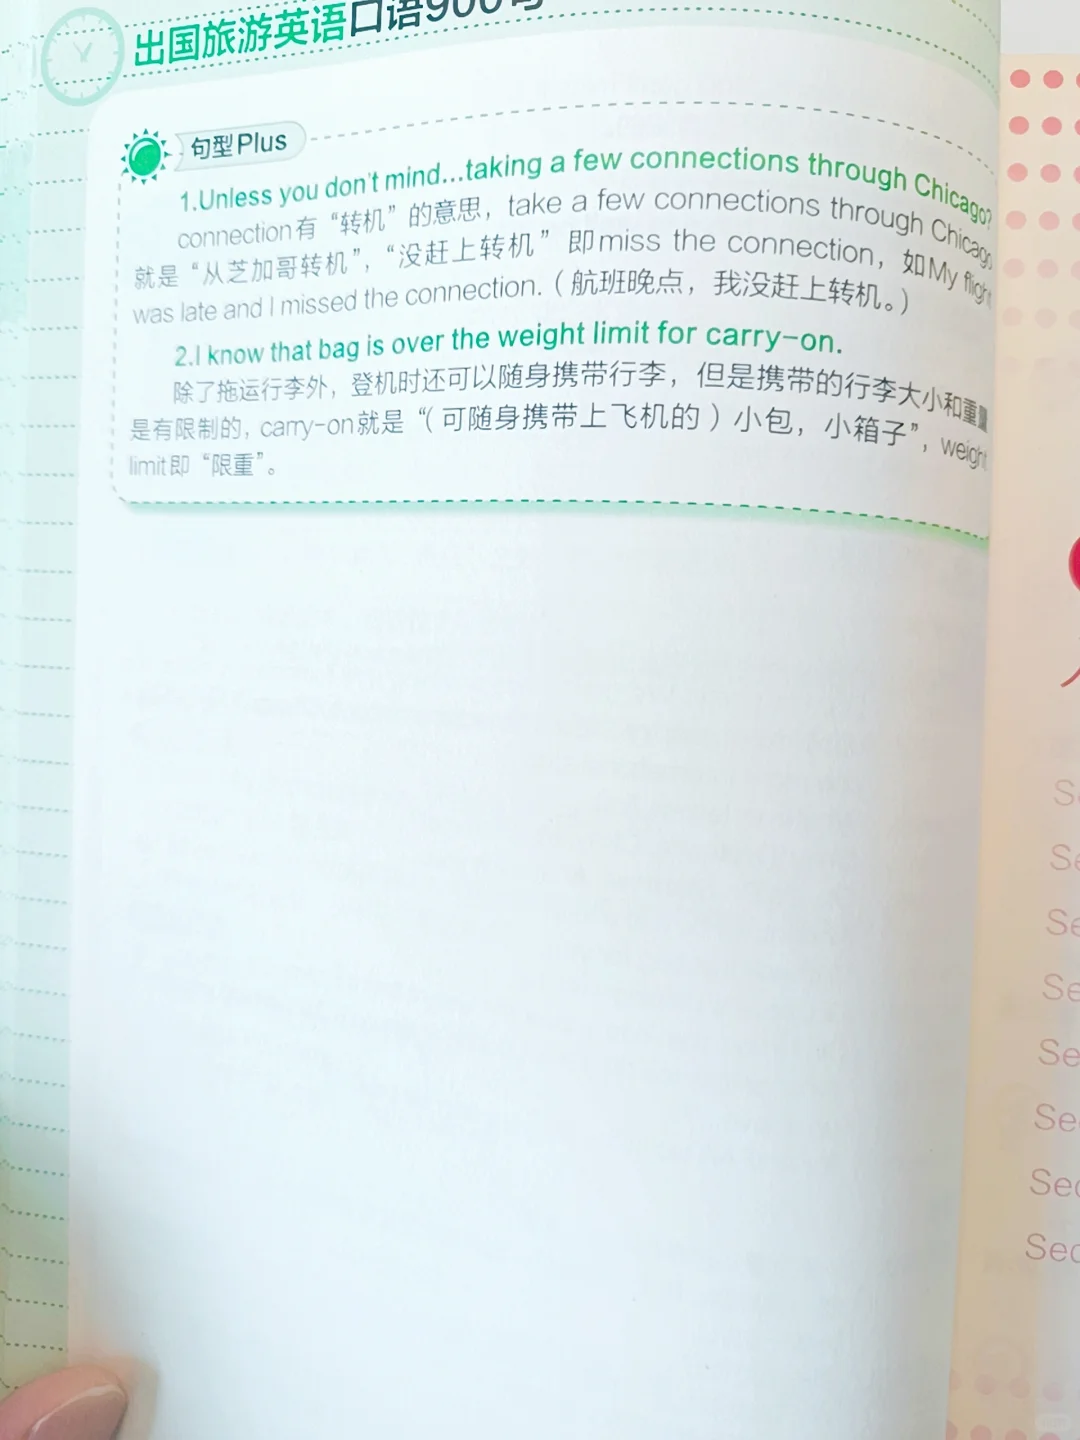 出国旅游英语口语900句
句型Plus
1.Unless you don't mind...taking a few connections through Chicago?
connection有“转机”的意思，take a few connections through Chicago
就是“从芝加哥转机”，“没赶上转机”即miss the connection，如My flight
was late and I missed the connection.（航班晚点，我没赶上转机。）
2.I know that bag is over the weight limit for carry-on.
除了拖运行李外，登机时还可以随身携带行李，但是携带的行李大小和重量
是有限制的，carry-on就是“（可随身携带上飞机的）小包，小箱子”，weight
limit即“限重”。